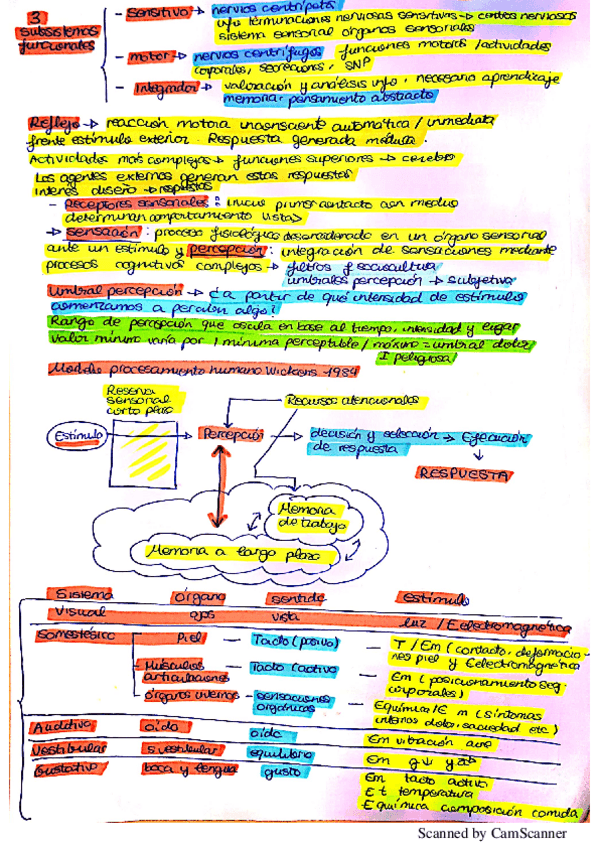 3 subsistemas funcionales
- Sensitivo → nervios centrípetos
info terminaciones nerviosas sensitivas → centros nerviosos
sistema sensorial órganos sensoriales
- motor → nervios centrífugos funciones motoras / actividades
corporales, secreciones, SNP
- Integrador → valoración y análisis info, necesario aprendizaje
memoria, pensamiento abstracto
Reflejo → reacción motora inconsciente automática / inmediata
frente estímulo exterior. Respuesta generada médula.
Actividades más complejas → funciones superiores → cerebro
Los agentes externos generan estas respuestas
Interés diseño → respuestas
- Receptores sensoriales: inicio primer contacto con medio
determinan comportamiento
→ sensación: proceso fisiológico desencadenado en un órgano sensorial
ante un estímulo y percepción: integración de sensaciones mediante
procesos cognitivos complejos → filtros sociocultura
umbrales percepción → subjetivo
Umbral percepción → ¿a partir de qué intensidad de estímulo
comenzamos a percibir algo?
Rango de percepción que oscila en base al tiempo, intensidad y lugar
valor mínimo varía por I mínima perceptible / máximo = umbral dolor
I peligrosa
Modelo procesamiento humano Wickens 1984
Reserva sensorial corto plazo
Recursos atencionales
Estímulo
Percepción → decisión y selección de respuesta → Ejecución
RESPUESTA
Memoria de trabajo
Memoria a largo plazo
Sistema órgano sentido estímulo
Visual ojos vista luz / E electromagnética
Somestésico - Piel - Tacto (pasivo) - T / Em (contacto, deformaciones piel y E electromagnética
- Músculos articulaciones - Tacto (activo) - Em (posicionamiento seg corporales)
- órganos internos - sensaciones orgánicas - E química / E m (síntomas internos dolor, saciedad etc)
Auditivo oído oído Em vibración aire
Vestibular s. vestibular equilibrio Em
Gustativo boca y lengua gusto Em tacto activo
E t temperatura
E química composición comida
Scanned by CamScanner